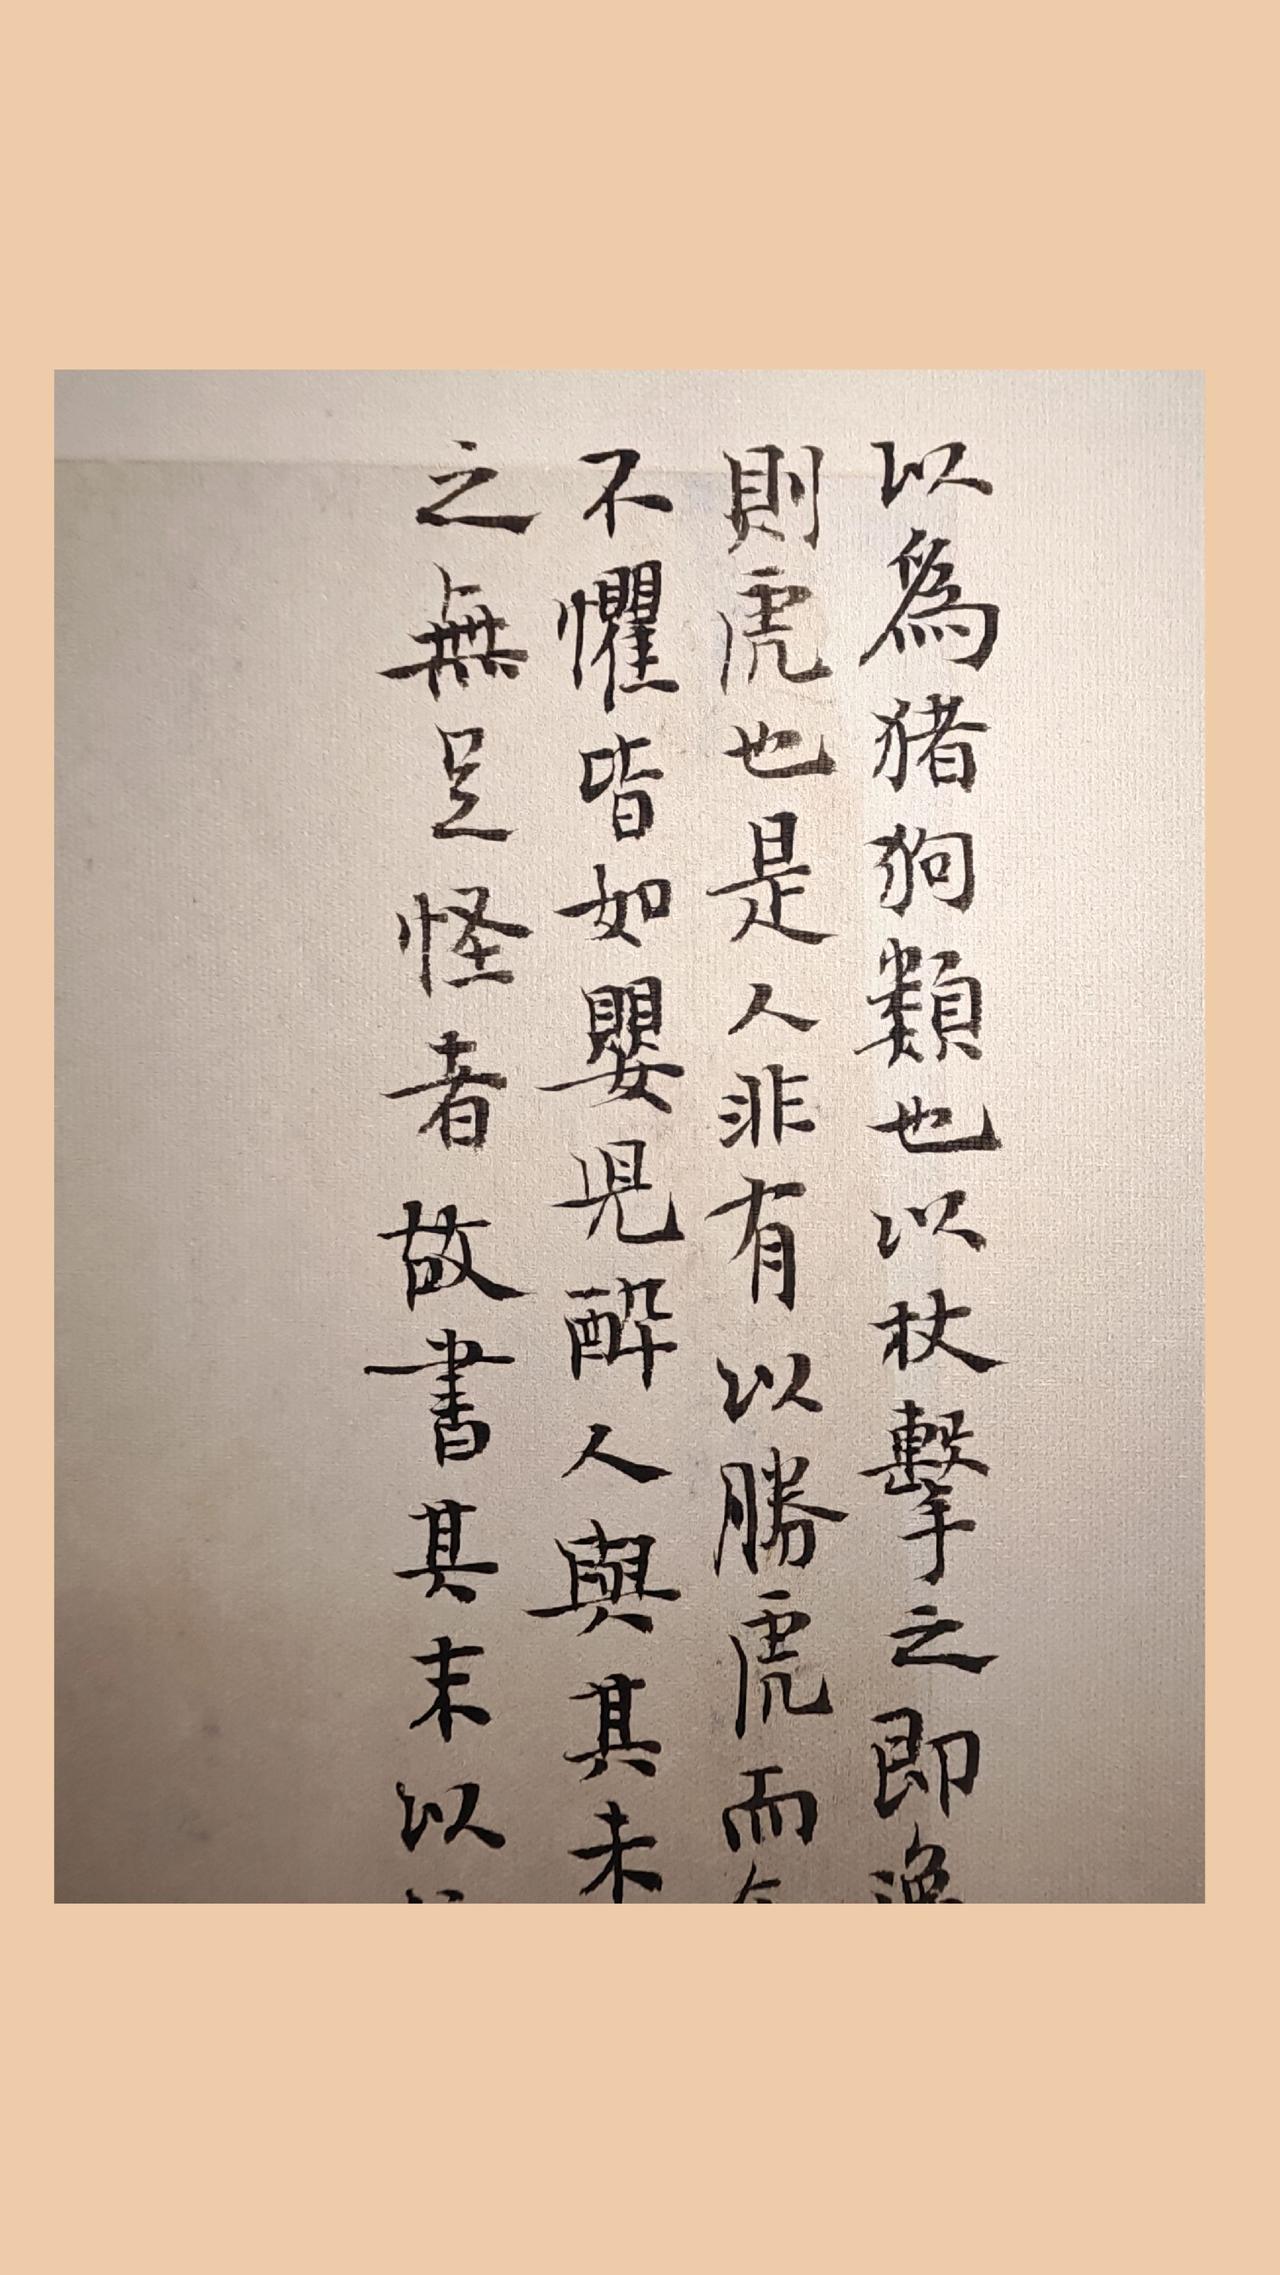 以爲猪狗類也以杖擊之即
則虎也是人非有以勝虎而
不懼皆如嬰児醉人與其未
之無足怪者故書其末以